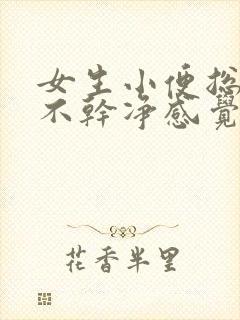 女生小便總
不幹凈感覺
花香半里